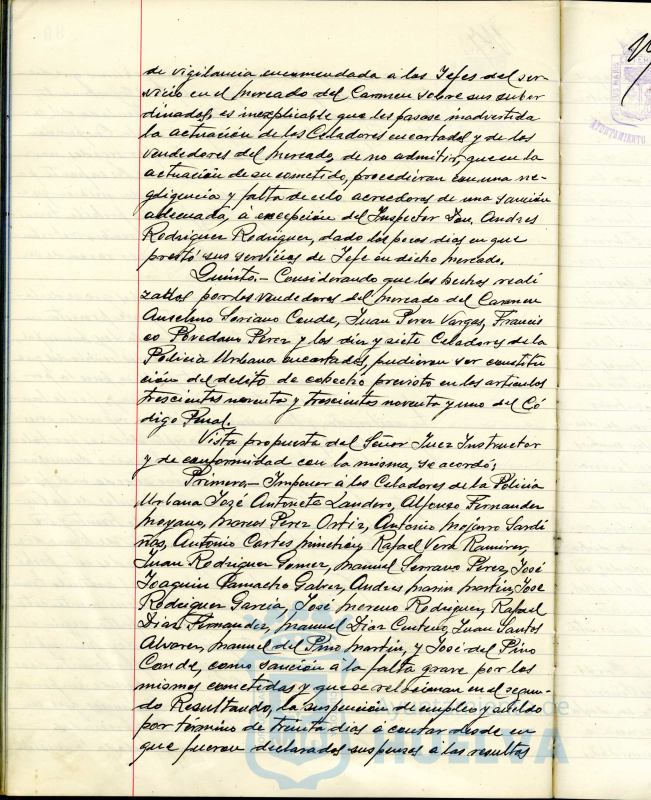 de vigilancia encomendada a los Jefes del ser-
vicio en el mercado del Carmen sobre sus subor
dinados, es inexplicable que les pasase inadvertida
la actuación de los Celadores encartados y de los
vendedores del mercado, de no admitir, que en la
actuación de su cometido, procedieran con una ne-
gligencia y falta de celo acreedoras de una sanción
adecuada, a excepción del Inspector Don Andres
Rodriguez Rodriguez, dado los pocos dias en que
prestó sus servicios de Jefe en dicho mercado.
Quinto.- Considerando que los hechos reali
zados por los vendedores del mercado del Carmen
Anselmo Soriano Conde, Juan Perez Vargas, Francis
co Povedano Perez y los diez y siete Celadores de la
Policia Urbana encartados, pudieran ser constitu
ción del delito de cohecho previsto en los articulos
trescientos noventa y trescientos noventa y uno del Có
digo Penal.
Vista propuesta del Señor Juez Instructor
y de conformidad con la misma, se acordó:
Primero.- Imponer a los Celadores de la Policia
Urbana José Antonete Landero, Alfonso Fernandez
Moyano, Marcos Perez Ortiz, Antonio Mojarro Sardi
ñas, Antonio Cartes Rafael Vera Ramirez,
Juan Rodriguez Gomez, Manuel Serrano Perez, José
Joaquin Camacho Galvez, Andres Marin Martin, Jose
Rodriguez Garcia, José Moreno Rodriguez, Rafael
Diaz Fernandez, Manuel Diaz Centeno, Juan Santos
Alvarez, Manuel del Pino Martin, y José del Pino
Conde, como sanción á la falta grave por los
mismos cometidas y que se relacionan en el segun-
do Resultando, la suspención de empleo y sueldo
por término de treinta dias á contar desde en
que fueron declarados suspensos á las resultas
AYUNTAMIENTO
Ayuntamiento de
HUELVA